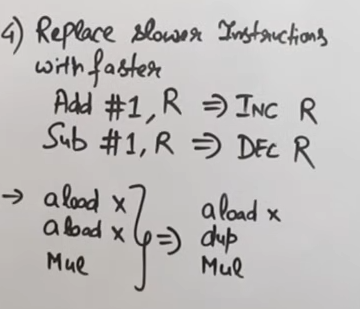 4) Replace slower Instructions
with faster
Add #1, R ⇒ INC R
Sub #1, R ⇒ DEC R
→ aload x
aload x
Mul
⇒
aload x
dup
Mul